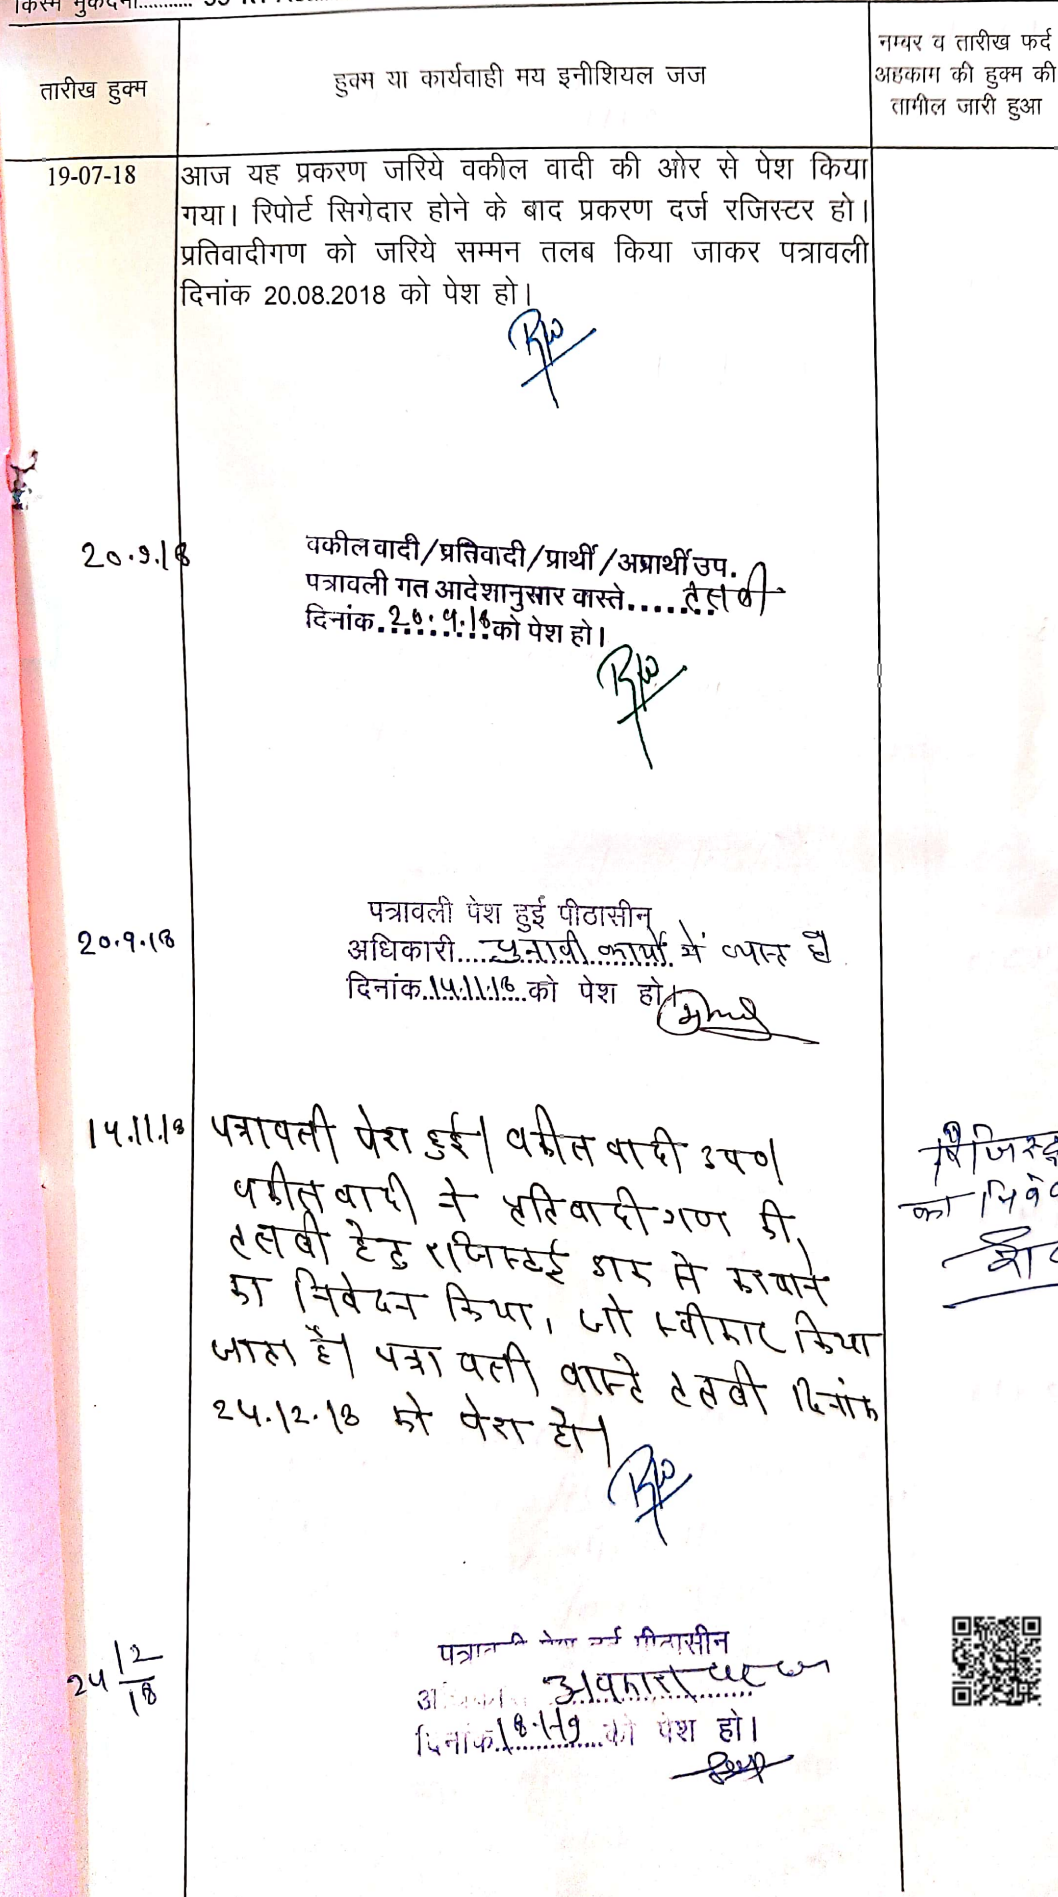 किस्म मुकदमा...........
तारीख हुक्म
हुक्म या कार्यवाही मय इनीशियल जज
नम्बर व तारीख फर्द
अहकाम की हुक्म की
तामील जारी हुआ
19-07-18
आज यह प्रकरण जरिये वकील वादी की ओर से पेश किया
गया। रिपोर्ट सिगेदार होने के बाद प्रकरण दर्ज रजिस्टर हो।
प्रतिवादीगण को जरिये सम्मन तलब किया जाकर पत्रावली
दिनांक 20.08.2018 को पेश हो।
वकील वादी/प्रतिवादी/प्रार्थी/अप्रार्थी उप.
पत्रावली गत आदेशानुसार वास्ते........तलबी
दिनांक.20.9.18को पेश हो।
20.9.18
पत्रावली पेश हुई पीठासीन
अधिकारी....चुनावी कार्यों में व्यस्त है
दिनांक.14.11.18...को पेश हो।
14.11.18
पत्रावली पेश हुई। वकील वादी उप०।
वकील वादी ने प्रतिवादीगण की
तलबी हेतु रजिस्टर्ड डाक से करवाने
का निवेदन किया, जो स्वीकार किया
जाता है। पत्रावली वास्ते तलबी दिनांक
24.12.18 को पेश हो।
24 12/18
पत्रावली पेश हुई पीठासीन
अवकाश पर
दिनांक.18.1.19...को पेश हो।